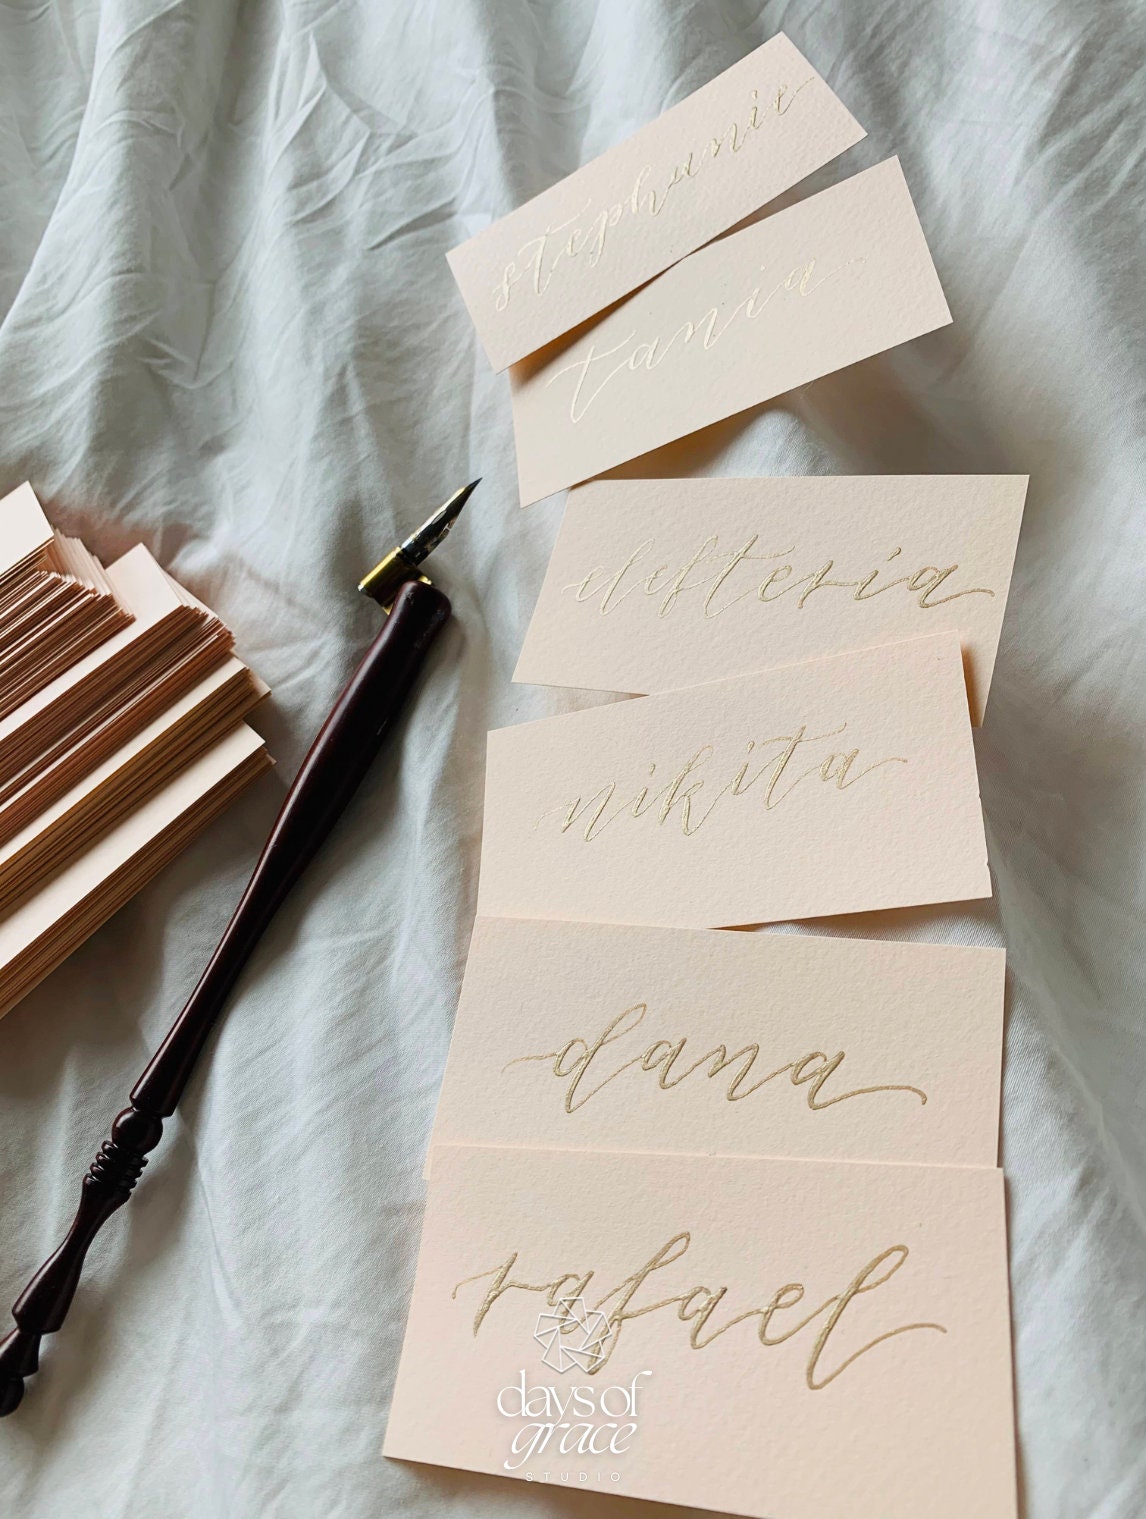 stephanie
tania
elefteria
nikita
dana
rafael
days of
grace
STUDIO